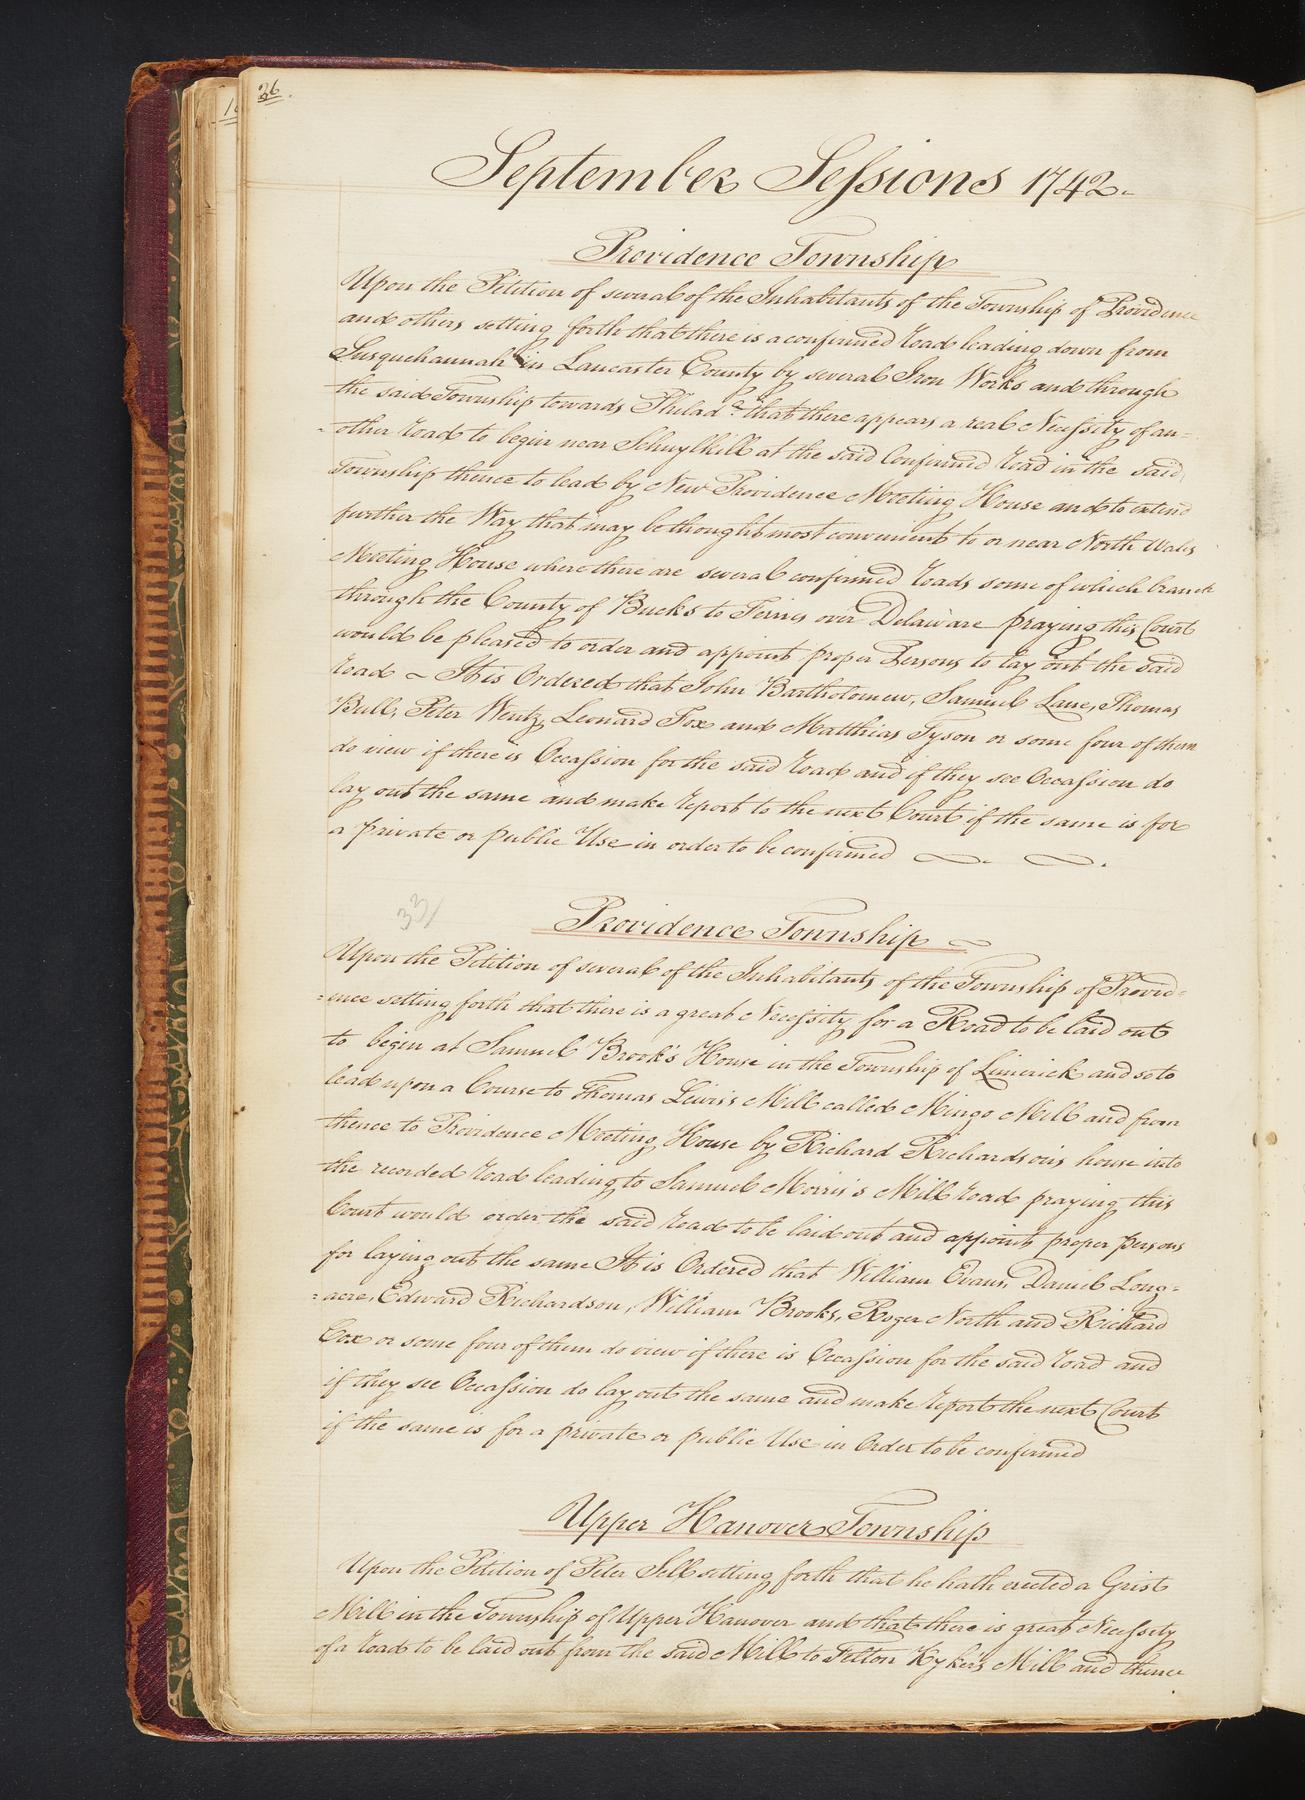 26.
September Sessions 1742-
Providence Township
Upon the Petition of several of the Inhabitants of the Township of Providence
and others setting forth that there is a confirmed road leading down from
Susquehannah in Lancaster County by several Iron Works and through
the said Township towards Philad.ª that there appears a real Necessity of an=
=other road to begin near Schuylkill at the said Confirmed road in the said
Township thence to lead by New Providence Meeting House and to extend
further the Way that may be thought most convenient to or near North Wales
Meeting House where there are several confirmed roads some of which branch
through the County of Bucks to Ferrys over Delaware praying this Court
would be pleased to order and appoint proper Persons to lay out the said
road ~ It is Ordered that John Bartholomew, Samuel Lane, Thomas
Bull, Peter Wentz, Leonard Fox and Matthias Tyson or some four of them
do view if there is Occassion for the said road and if they see Occassion do
lay out the same and make report to the next Court if the same is for
a private or public Use in order to be confirmed
33/
Providence Township ~
Upon the Petition of several of the Inhabitants of the Township of Provid=
=ence setting forth that there is a great Necessity for a Road to be laid out
to begin at Samuel Brook's House in the Township of Limerick and so to
lead upon a Course to Thomas Lewis's Mill called Mingo Mill and from
thence to Providence Meeting House by Richard Richardson's house into
the recorded road leading to Samuel Morris's Mill road praying this
Court would order the said road to be laid out and appoint proper persons
for laying out the same It is Ordered that William Evans, Daniel Long=
=acre, Edward Richardson, William Brooks, Roger North and Richard
Cox or some four of them do view if there is Occassion for the said road and
if they see Occassion do lay out the same and make report the next Court
if the same is for a private or public Use in Order to be confirmed
Upper Hanover Township
Upon the Petition of Peter Sell setting forth that he hath erected a Grist
Mill in the Township of Upper Hanover and that there is great Necessity
of a road to be laid out from the said Mill to Felton Kyker's Mill and thence